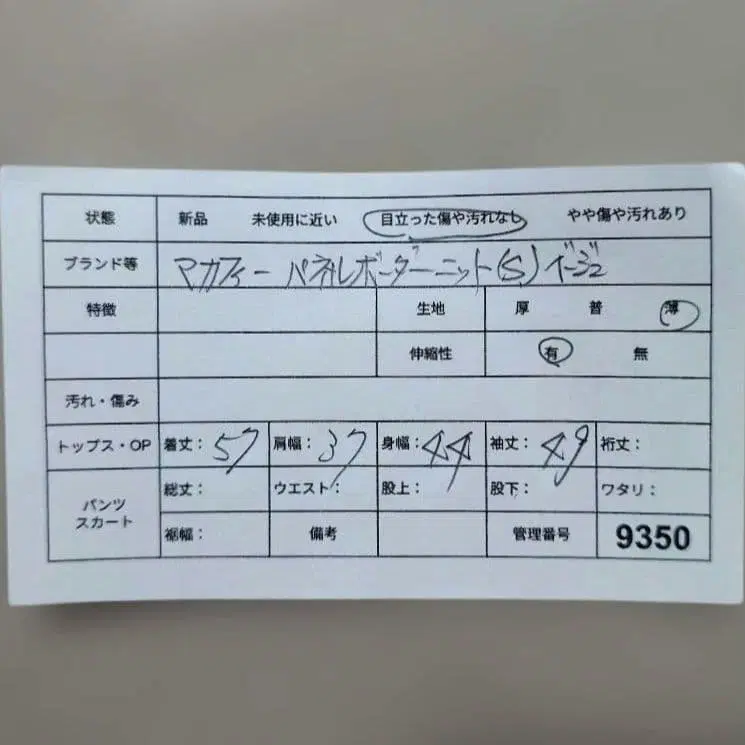 状態 新品 未使用に近い 目立った傷や汚れなし やや傷や汚れあり
ブランド等 マカフィー パネルボーダーニット(S) ベージュ
特徴 生地 厚 普 薄
伸縮性 有 無
汚れ・傷み
トップス・OP 着丈：57 肩幅：37 身幅：44 袖丈：49 裄丈：
パンツ スカート 総丈： ウエスト： 股上： 股下： ワタリ：
裾幅： 備考 管理番号 9350